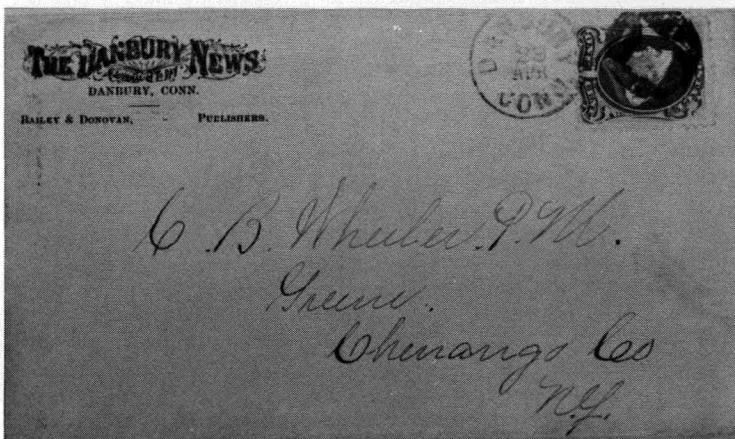 THE DANBURY NEWS
DANBURY, CONN.
BAILEY & DONOVAN, PUBLISHERS.
DANBURY
APR
CONN.
C. B. Wheeler. P. M.
Greene.
Chenango Co
N.Y.